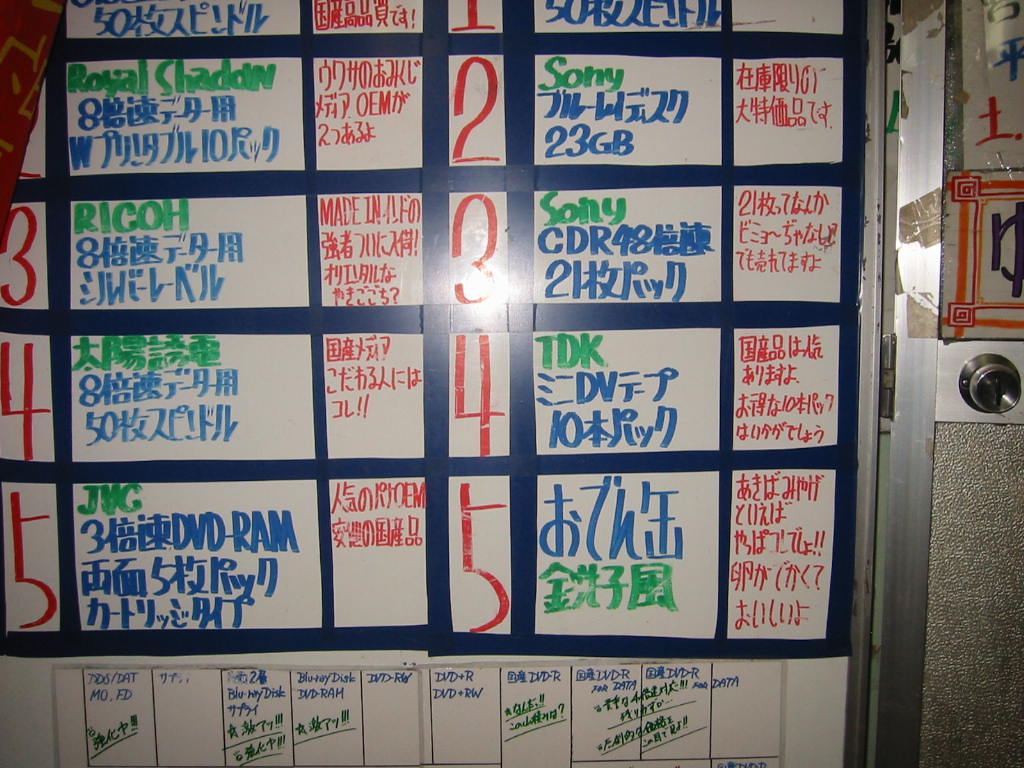 50枚スピンドル
国産高品質です!
1
50枚スピンドル
Royal Shadow
8倍速データー用
Wプリンタブル10パック
ウワサのおみくじ
メディア OEMが
2つあるよ
2
Sony
ブルーレイディスク
23GB
在庫限りの
大特価品です。
3
RICOH
8倍速データー用
シルバーレーベル
MADE IN インドの
強者ついに入荷!
オリエンタルな
やきごこち?
3
Sony
CDR48倍速
21枚パック
21枚ってなんか
ビミョ〜ぢゃない?
でも売れてますよ
4
太陽誘電
8倍速データ用
50枚スピンドル
国産メディア
こだわる人には
コレ!!
4
TDK
ミニDVテープ
10本パック
国産品は人気
ありますよ。
お得な10本パック
はいかがでしょう
5
JVC
3倍速DVD-RAM
両面5枚パック
カートリッジタイプ
人気のパナOEM
安心の国産品
5
おでん缶
あきばみやげ
といえば
やっぱコレでしょ!!
卵がでかくて
おいしいよ
DDS/DAT
MO, FD
☆強化中!!!
2層
Blu-ray Disk
サプライ
☆激アツ!!!
☆強化中!!!
Blu-ray Disk
DVD-RAM
☆激アツ!!!
DVD-RW
DVD+R
DVD+RW
国産DVD-R
国産DVD-R
FOR DATA
国産DVD-R
FOR DATA
国産DVD-R
土.
ゆ